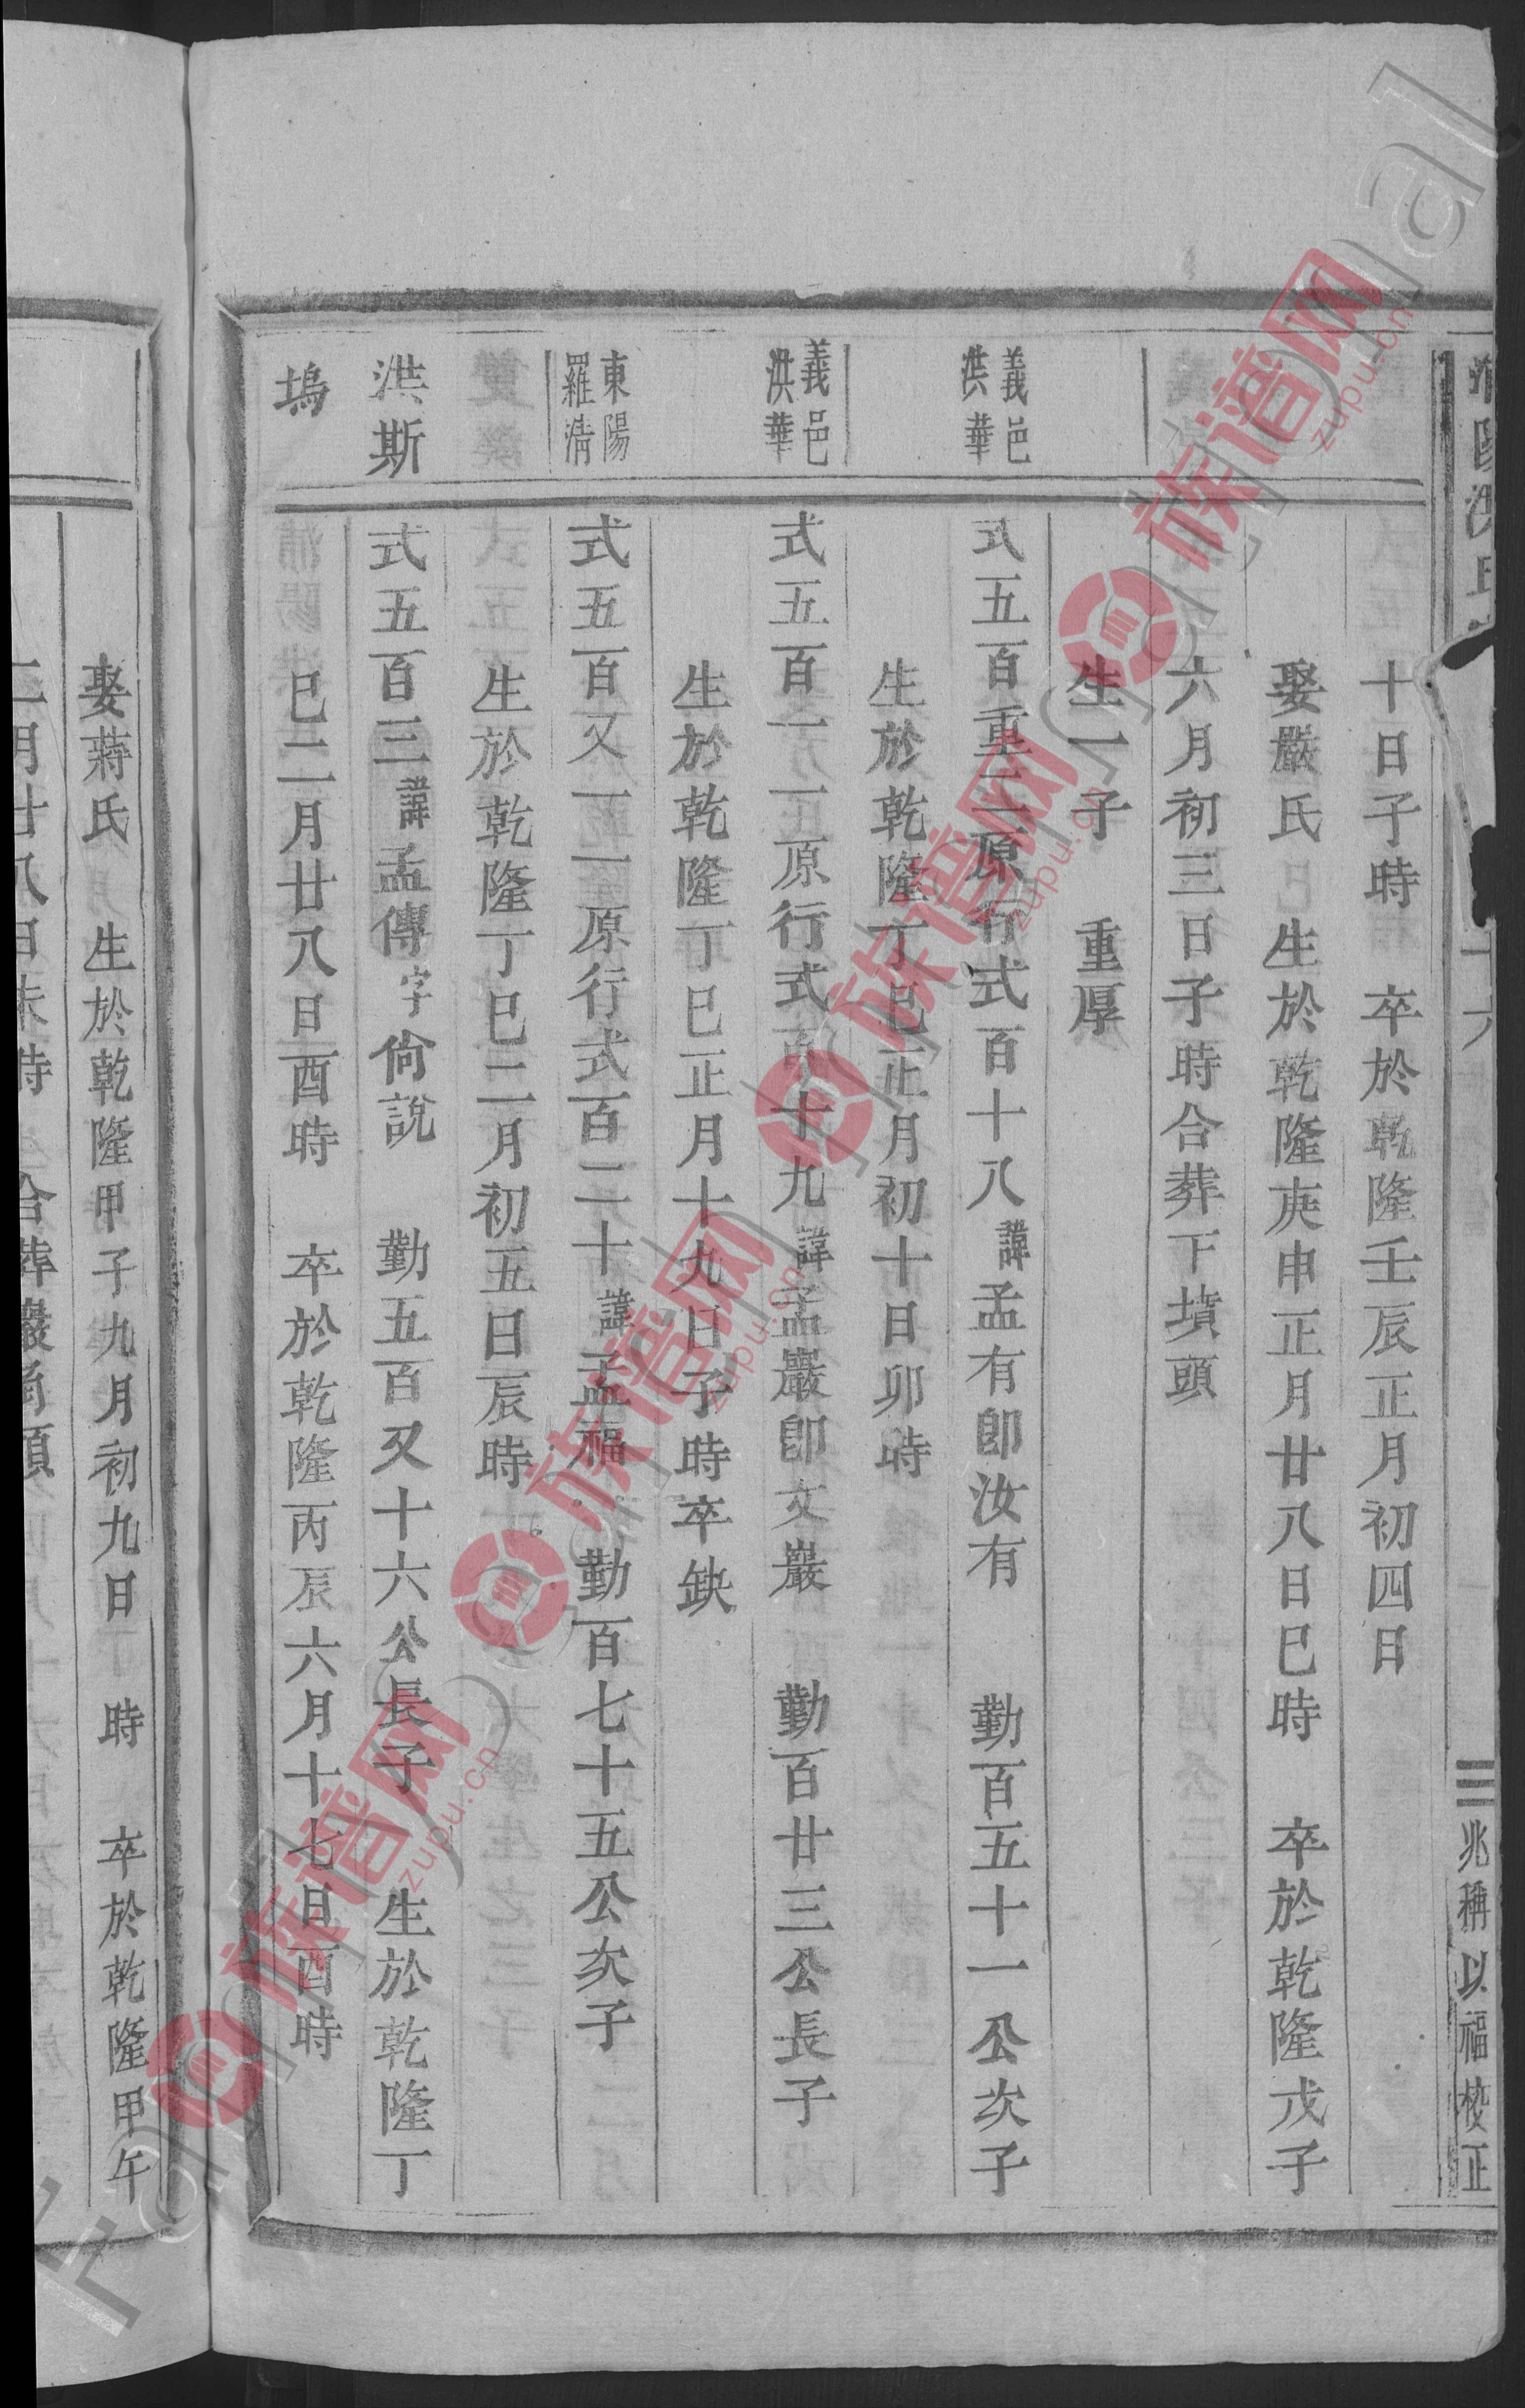 十六
兆稱以福校正
十日子時 卒於乾隆壬辰正月初四日
娶嚴氏 生於乾隆庚申正月廿八日巳時 卒於乾隆戊子
六月初三日子時合葬下墳頭
生一子 重厚
義邑
洪華
式五百重二原行式百十八諱孟有即汝有 勤百五十一公次子
生於乾隆丁巳正月初十日卯時
義邑
洪華
式五百一一原行式百十九諱孟巖即文巖 勤百廿三公長子
生於乾隆丁巳正月十九日子時卒缺
東陽
羅清
式五百又一一原行式百二十諱孟福 勤百七十五公次子
生於乾隆丁巳二月初五日辰時
洪斯
塢
式五百三諱孟傳字尙說 勤五百又十六公長子 生於乾隆丁
巳二月廿八日酉時 卒於乾隆丙辰六月十七日酉時
娶蔣氏 生於乾隆甲子九月初九日 時 卒於乾隆甲午
二月廿八日未時 合葬巖
族谱网
zupu.cn